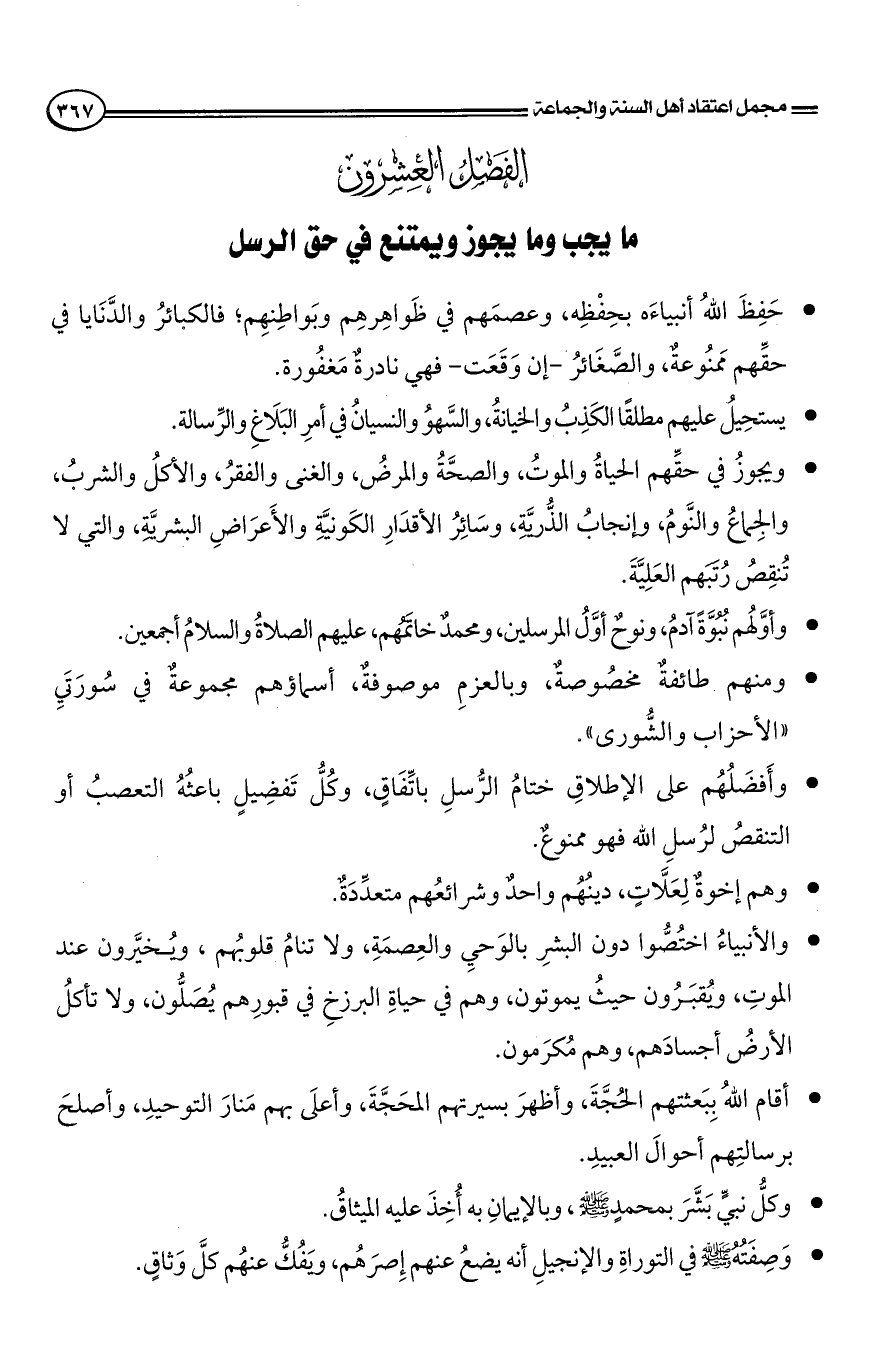 مجمل اعتقاد أهل السنة والجماعة ٣٦٧
الفَصْلُ العِشْرُونَ
ما يجب وما يجوز ويمتنع في حق الرسل
• حَفِظَ اللهُ أنبياءَه بحِفْظِه، وعصمَهم في ظَواهِرِهِم وبَواطِنِهِم؛ فالكبائرُ والدَّنَايا في
حقِّهم مَمنُوعةٌ، والصَّغَائرُ -إن وَقَعَت- فهي نادرةٌ مَغفُورة.
• يستحِيلُ عليهم مطلقًا الكَذِبُ والخيانةُ، والسَّهوُ والنسيانُ في أمرِ البَلَاغِ والرِّسالة.
• ويجوزُ في حقِّهم الحياةُ والموتُ، والصحَّةُ والمرضُ، والغنى والفقرُ، والأكلُ والشربُ،
والجِماعُ والنَّومُ، وإنجابُ الذُّريَّةِ، وسَائِرُ الأقدَارِ الكَونيَّةِ والأَعرَاضِ البشريَّةِ، والتي لا
تُنقِصُ رُتَبَهم العَلِيَّةَ.
• وأوَّلُهم نُبُوَّةً آدمُ، ونوحٌ أوَّلُ المرسلين، ومحمدٌ خاتَمُهم، عليهم الصلاةُ والسلامُ أجمعين.
• ومنهم طائفةٌ مخصُوصةٌ، وبالعزمِ موصوفةٌ، أسماؤهم مجموعةٌ في سُورَتَيِ
«الأحزاب والشُّورى».
• وأَفضَلُهُم على الإطلاقِ ختامُ الرُّسلِ باتِّفَاقٍ، وكُلُّ تَفضِيلٍ باعثُهُ التعصبُ أو
التنقصُ لرُسلِ الله فهو ممنوعٌ.
• وهم إخوةٌ لِعَلَّاتٍ، دينُهُم واحدٌ وشرائعُهم متعدِّدَةٌ.
• والأنبياءُ اختُصُّوا دون البشرِ بالوَحيِ والعِصمَةِ، ولا تنامُ قلوبُهم، ويُخيَّرون عند
الموتِ، ويُقبَرُون حيثُ يموتون، وهم في حياةِ البرزخِ في قبورِهم يُصَلُّون، ولا تأكلُ
الأرضُ أجسادَهم، وهم مُكرَمون.
• أقام اللهُ بِبَعثتهم الحُجَّةَ، وأظهرَ بسيرتهم المحَجَّةَ، وأعلَى بهم مَنارَ التوحيدِ، وأصلحَ
برسالتِهم أحوالَ العبيدِ.
• وكلُّ نبيٍّ بَشَّرَ بمحمدٍ ﷺ، وبالإيمانِ به أُخِذَ عليه الميثاقُ.
• وَصِفَتُهُ ﷺ في التوراةِ والإنجيلِ أنه يضعُ عنهم إِصرَهُم، ويَفُكُّ عنهُم كلَّ وَثاقٍ.